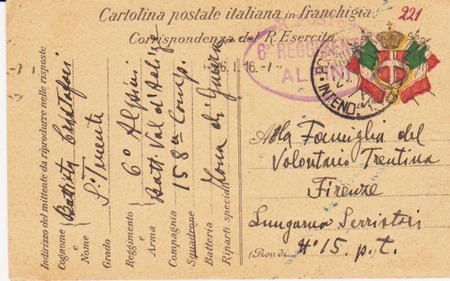 Cartolina postale italiana in franchigia
221
Corrispondenza del R. Esercito
6° REGGIMENTO
ALPINI
POSTA
INTEND.
Indirizzo del mittente da riprodurre nelle risposte
Cognome Battisti
e
Nome
Grado S. Tenente
Reggimento 6° Alpini
e
Arma Batt. Val d'Adige
Compagnia 158a Comp.
Squadrone
Batteria Zona di Guerra
Riparti speciali
Alla Famiglia del
Volontario Trentino
Firenze
Lungarno Serristori
N° 15. p. t.